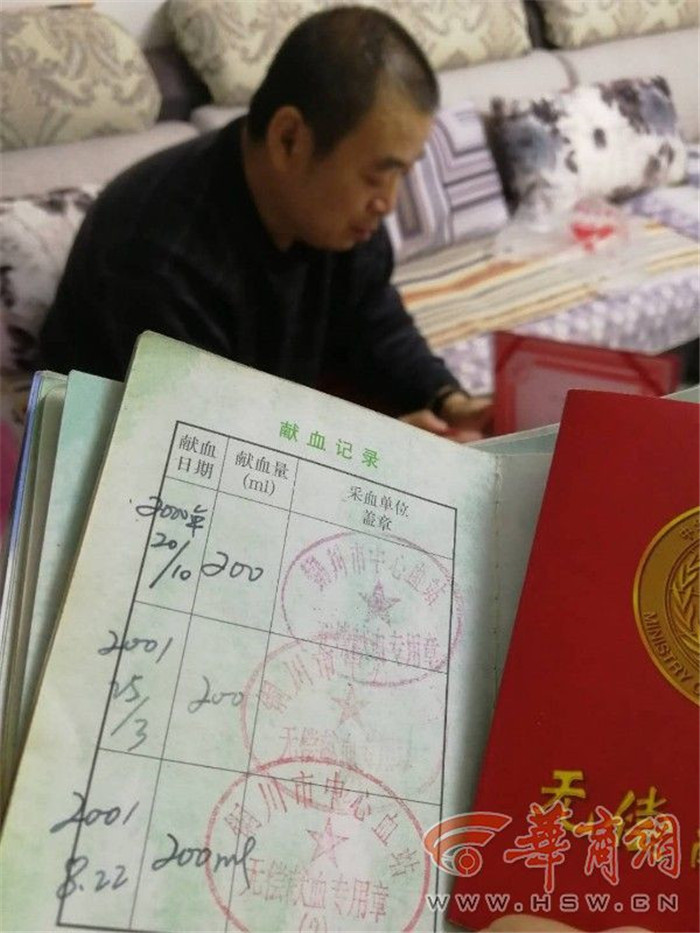 献血记录
献血
日期
献血量
(ml)
采血单位
盖章
2000年
20/10
200
铜川市中心血站
无偿献血专用章
2001
25/3
200
铜川市
无偿献血专用章
2001
8.22
200ml
铜川市中心血站
无偿献血专用章
(2)
MINISTRY O
天使
华商网
WWW.HSW.CN